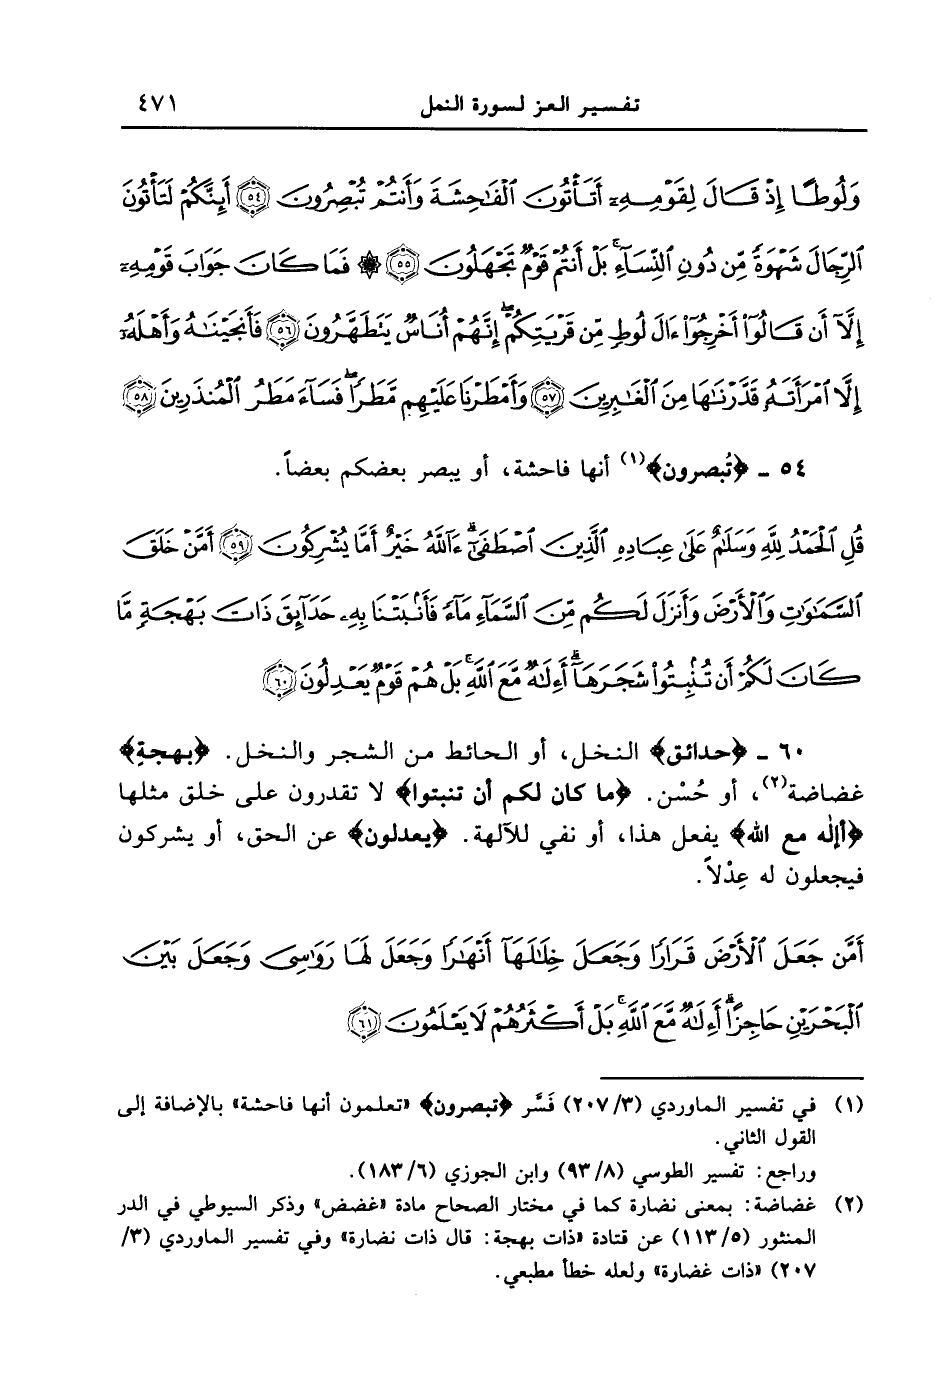 تفسير العز لسورة النمل ٤٧١
وَلُوطًا إِذْ قَالَ لِقَوْمِهِۦٓ أَتَأْتُونَ ٱلْفَٰحِشَةَ وَأَنتُمْ تُبْصِرُونَ ﴿٥٤﴾ أَئِنَّكُمْ لَتَأْتُونَ
ٱلرِّجَالَ شَهْوَةً مِّن دُونِ ٱلنِّسَآءِ ۚ بَلْ أَنتُمْ قَوْمٌ تَجْهَلُونَ ﴿٥٥﴾ ۞ فَمَا كَانَ جَوَابَ قَوْمِهِۦٓ
إِلَّآ أَن قَالُوٓا۟ أَخْرِجُوٓا۟ ءَالَ لُوطٍ مِّن قَرْيَتِكُمْ ۖ إِنَّهُمْ أُنَاسٌ يَتَطَهَّرُونَ ﴿٥٦﴾ فَأَنجَيْنَٰهُ وَأَهْلَهُۥٓ
إِلَّا ٱمْرَأَتَهُۥ قَدَّرْنَٰهَا مِنَ ٱلْغَٰبِرِينَ ﴿٥٧﴾ وَأَمْطَرْنَا عَلَيْهِم مَّطَرًا ۖ فَسَآءَ مَطَرُ ٱلْمُنذَرِينَ ﴿٥٨﴾
٥٤ ـ ﴿تُبصرون﴾(١) أنها فاحشة، أو يبصر بعضكم بعضاً.
قُلِ ٱلْحَمْدُ لِلَّهِ وَسَلَٰمٌ عَلَىٰ عِبَادِهِ ٱلَّذِينَ ٱصْطَفَىٰٓ ۗ ءَآللَّهُ خَيْرٌ أَمَّا يُشْرِكُونَ ﴿٥٩﴾ أَمَّنْ خَلَقَ
ٱلسَّمَٰوَٰتِ وَٱلْأَرْضَ وَأَنزَلَ لَكُم مِّنَ ٱلسَّمَآءِ مَآءً فَأَنۢبَتْنَا بِهِۦ حَدَآئِقَ ذَاتَ بَهْجَةٍ مَّا
كَانَ لَكُمْ أَن تُنۢبِتُوا۟ شَجَرَهَآ ۗ أَءِلَٰهٌ مَّعَ ٱللَّهِ ۚ بَلْ هُمْ قَوْمٌ يَعْدِلُونَ ﴿٦٠﴾
٦٠ ـ ﴿حدائق﴾ النخل، أو الحائط من الشجر والنخل. ﴿بهجةٍ﴾
غضاضة(٢)، أو حُسْن. ﴿ما كان لكم أن تنبتوا﴾ لا تقدرون على خلق مثلها
﴿أإلٰه مع الله﴾ يفعل هذا، أو نفي للآلهة. ﴿يعدلون﴾ عن الحق، أو يشركون
فيجعلون له عِدْلاً.
أَمَّن جَعَلَ ٱلْأَرْضَ قَرَارًا وَجَعَلَ خِلَٰلَهَآ أَنْهَٰرًا وَجَعَلَ لَهَا رَوَٰسِىَ وَجَعَلَ بَيْنَ
ٱلْبَحْرَيْنِ حَاجِزًا ۗ أَءِلَٰهٌ مَّعَ ٱللَّهِ ۚ بَلْ أَكْثَرُهُمْ لَا يَعْلَمُونَ ﴿٦١﴾
(١) في تفسير الماوردي (٢٠٧/٣) فَسَّر ﴿تبصرون﴾ «تعلمون أنها فاحشة» بالإضافة إلى
القول الثاني.
وراجع: تفسير الطوسي (٩٣/٨) وابن الجوزي (١٨٣/٦).
(٢) غضاضة: بمعنى نضارة كما في مختار الصحاح مادة «غضض» وذكر السيوطي في الدر
المنثور (١١٣/٥) عن قتادة «ذات بهجة: قال ذات نضارة» وفي تفسير الماوردي (٣/
٢٠٧) «ذات غضارة» ولعله خطأ مطبعي.